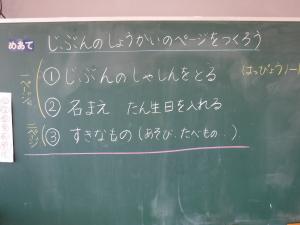 めあて じぶんのしょうかいのページをつくろう
一ページ
① じぶんのしゃしんをとる
はっぴょうノート
② 名まえ たん生日を入れる
二ページ
③ すきなもの(あそび、たべもの‥)